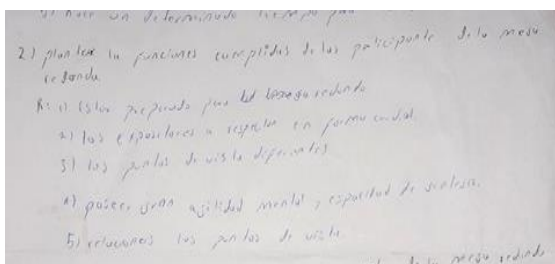 hace un determinado tiempo para
2) plantear la funciones cumplidas de los participante de la mesa
redonda
R: 1) Estar preparado para la mesa redonda
2) los expositores a respetar en forma cordial.
3) los puntos de vista diferentes
4) poseer gran agilidad mental y capacidad de sintesis.
5) relacionar los puntos de vista.
de la mesa redonda